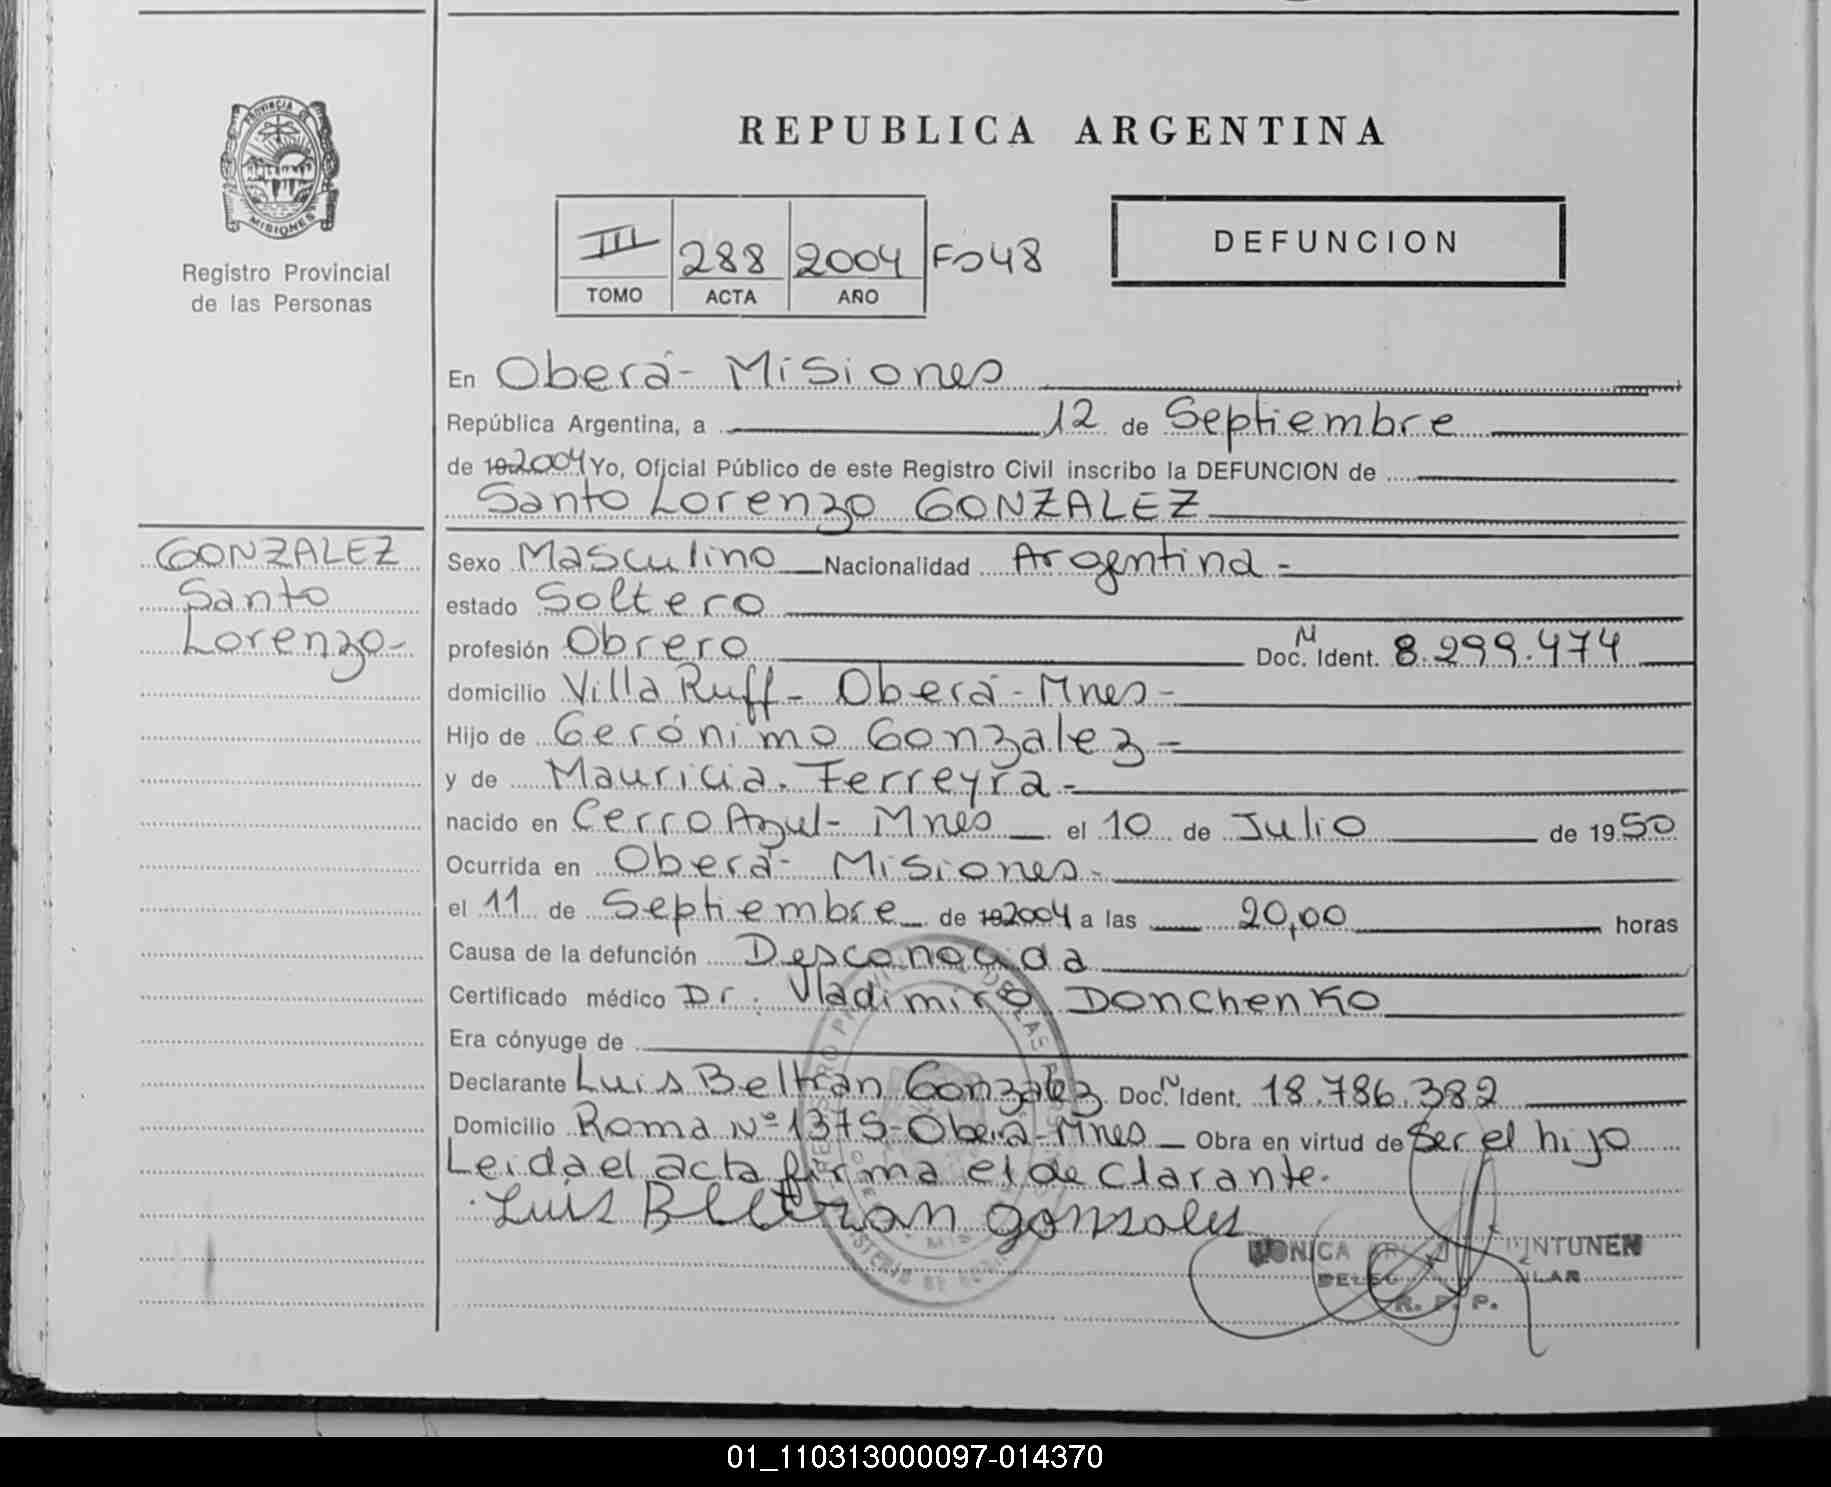 PROVINCIA DE
MISIONES
Registro Provincial
de las Personas
REPUBLICA ARGENTINA
III 288 2004 Fo48
TOMO ACTA AÑO
DEFUNCION
En Oberá- Misiones
República Argentina, a 12 de Septiembre
de 192004 Yo, Oficial Público de este Registro Civil inscribo la DEFUNCION de
Santo Lorenzo GONZALEZ
GONZALEZ
Santo
Lorenzo-
Sexo Masculino Nacionalidad Argentina-
estado Soltero
profesión Obrero Doc. N Ident. 8.299.474
domicilio Villa Ruff- Oberá-Mnes-
Hijo de Gerónimo Gonzalez-
y de Mauricia Ferreyra-
nacido en Cerro Azul- Mnes el 10 de Julio de 1950
Ocurrida en Oberá- Misiones-
el 11 de Septiembre de 192004 a las 20,00 horas
Causa de la defunción Desconocida
Certificado médico Dr. Vladimiro DonchenKo
Era cónyuge de
Declarante Luis Beltran Gonzalez Doc. N Ident. 18.786.382
Domicilio Roma Nº1375-Oberá-Mnes Obra en virtud de Ser el hijo
Leida el acta firma el declarante.
Luis Beltran gonzales
MONICA PINTUNEN
R. P. P.
01_110313000097-014370